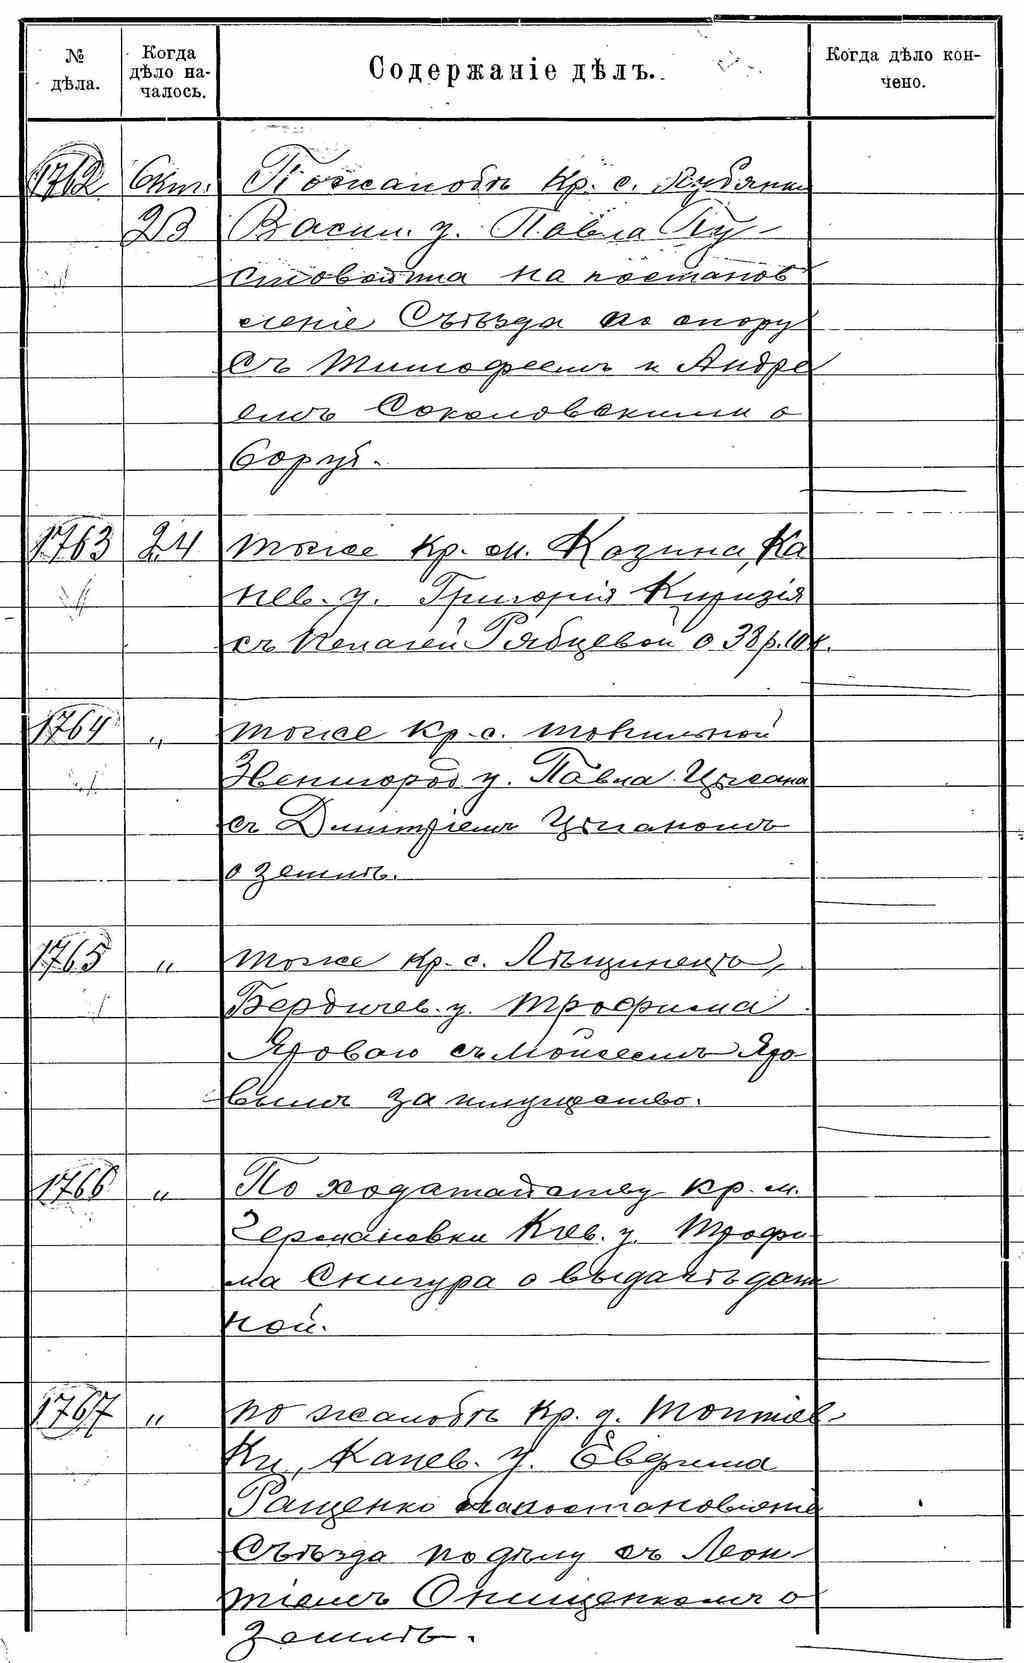 № дѣла. Когда дѣло на- чалось. Содержаніе дѣлъ. Когда дѣло кон- чено.
1762 Окт. По жалобѣ кр. с. Лубянки
23 Васил. у. Павла Пу-
стовойта на постанов
леніе Съѣзда по спору
съ Тимофеемъ и Андре
емъ Соколовскими о
1763 24 тоже кр. м. Козина, Ка
нев. у. Григорія
съ Пелагеей Рябцевой о 38 р. 10 к.
1764 „ тоже кр. с. Товкильной
Звенигород. у. Павла Цыгана
съ Дмитріемъ Цыганомъ
о землѣ.
1765 „ тоже кр. с. Лѣщинецъ,
Бердичев. у. Трофима
Ядоваго съ Моисеемъ Ядо
вымъ за имущество.
1766 „ По ходатайству кр. м.
Германовки Кіев. у. Трофи
ма Снигура о выдачѣ дан
ной.
1767 „ по жалобѣ кр. д. Топтіев-
ки, Канев. у. Евфима
Ращенко на постановленіе
Съѣзда по дѣлу съ Леон-
тіемъ Онищенкомъ о
землѣ.